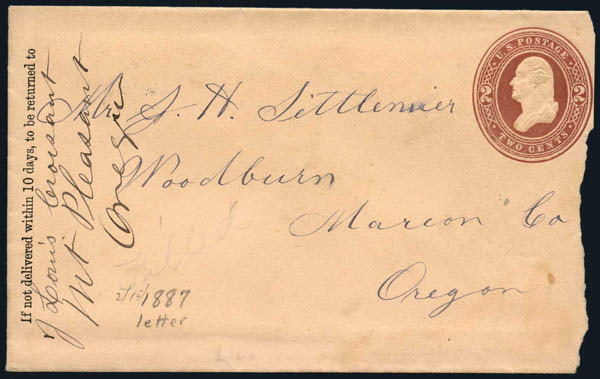 If not delivered within 10 days, to be returned to
Louis Croisant
Mt Pleasant
Oregon
U.S. POSTAGE
2 2
TWO CENTS
Mr J. H. Settlemier
Woodburn
Marion Co
Oregon
Filled
1887
letter